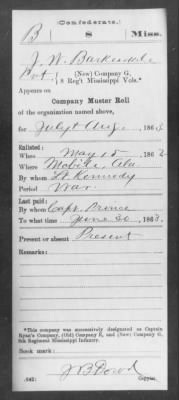 (Confederate.)
B | 8 | Miss.
J. W. Barkesdale
Pvt, (New) Company G,
8 Reg't Mississippi Vols.*
Appears on
Company Muster Roll
of the organization named above,
for July & Aug, 1863
Enlisted:
When May 15, 1862
Where Mobile, Ala
By whom Lt Kennedy
Period War
Last paid:
By whom Capt. Prince
To what time June 30, 1863
Present or absent Present
Remarks:
*This company was successively designated as Captain
Ryan's Company, (Old) Company E, and (New) Company G,
8th Regiment Mississippi Infantry.
Book mark:
(642) J B Dowd
Copyist.